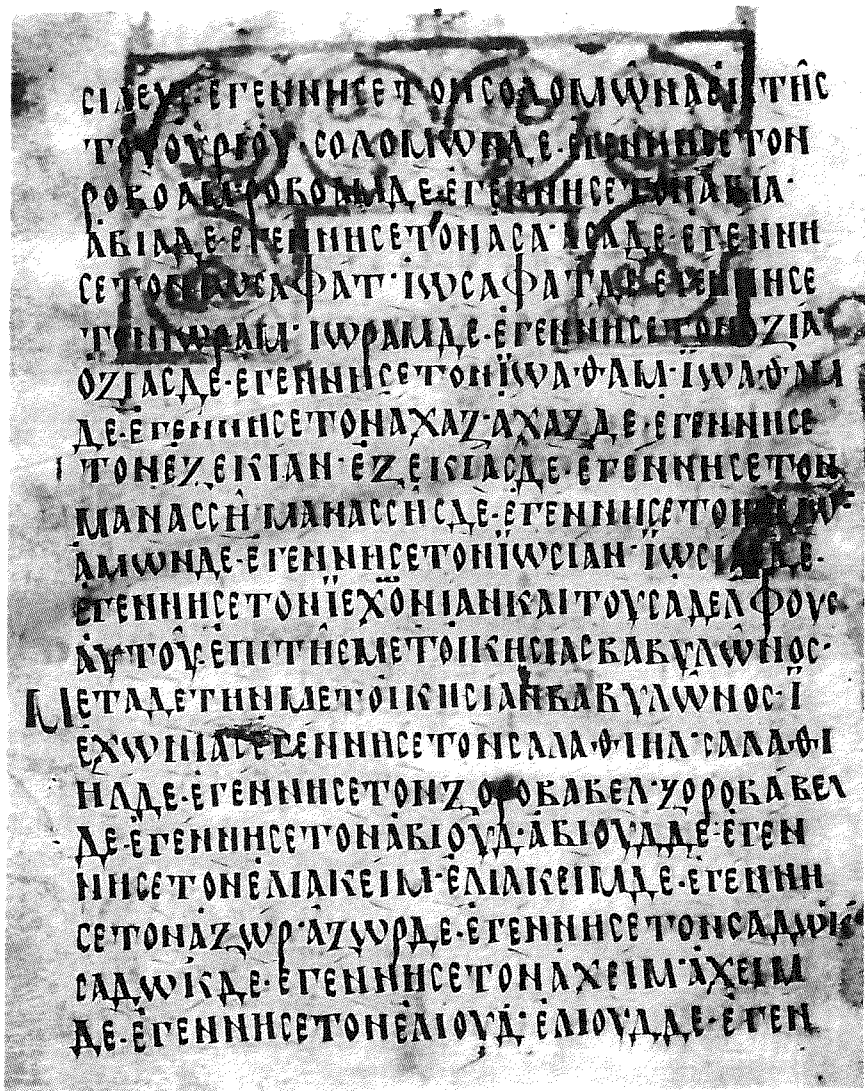 ϹΙΛΕΥϹ·ΕΓΕΝΝΗϹΕΤΟΝϹΟΛΟΜΩΝΑΕΚΤΗϹ
ΤΟΥΟΥΡΙΟΥ·ϹΟΛΟΜΩΝΔΕ·ΕΓΕΝΝΗϹΕΤΟΝ
ΡΟΒΟΑΜ·ΡΟΒΟΑΜΔΕ·ΕΓΕΝΝΗϹΕΤΟΝΑΒΙΑ·
ΑΒΙΑΔΕ·ΕΓΕΝΝΗϹΕΤΟΝΑϹΑ·ΑϹΑΔΕ·ΕΓΕΝΝΗ
ϹΕΤΟΝΙΩϹΑΦΑΤ·ΙΩϹΑΦΑΤΔΕ·ΕΓΕΝΝΗϹΕ
ΤΟΝΙΩΡΑΜ·ΙΩΡΑΜΔΕ·ΕΓΕΝΝΗϹΕΤΟΝΟΖΙΑ
ΟΖΙΑϹΔΕ·ΕΓΕΝΝΗϹΕΤΟΝΪΩΑΘΑΜ·ΪΩΑΘΑΜ
ΔΕ·ΕΓΕΝΝΗϹΕΤΟΝΑΧΑΖ·ΑΧΑΖΔΕ·ΕΓΕΝΝΗϹΕ
ΤΟΝΕΖΕΚΙΑΝ·ΕΖΕΚΙΑϹΔΕ·ΕΓΕΝΝΗϹΕΤΟΝ
ΜΑΝΑϹϹΗ·ΜΑΝΑϹϹΗϹΔΕ·ΕΓΕΝΝΗϹΕΤΟΝ
ΑΜΩΝΔΕ·ΕΓΕΝΝΗϹΕΤΟΝΪΩϹΙΑΝ·ΪΩϹΙΑϹΔΕ·
ΕΓΕΝΝΗϹΕΤΟΝΪΕΧΟΝΙΑΝΚΑΙΤΟΥϹΑΔΕΛΦΟΥϹ
ΑΥΤΟΥ·ΕΠΙΤΗϹΜΕΤΟΙΚΗϹΙΑϹΒΑΒΥΛΩΝΟϹ·
ΜΕΤΑΔΕΤΗΝΜΕΤΟΙΚΗϹΙΑΝΒΑΒΥΛΩΝΟϹ·Ϊ
ΕΧΩΝΙΑϹΕΓΕΝΝΗϹΕΤΟΝϹΑΛΑΘΙΗΛ·ϹΑΛΑΘΙ
ΗΛΔΕ·ΕΓΕΝΝΗϹΕΤΟΝΖΟΡΟΒΑΒΕΛ·ΖΟΡΟΒΑΒΕΛ
ΔΕ·ΕΓΕΝΝΗϹΕΤΟΝΑΒΙΟΥΔ·ΑΒΙΟΥΔΔΕ·ΕΓΕΝ
ΝΗϹΕΤΟΝΕΛΙΑΚΕΙΜ·ΕΛΙΑΚΕΙΜΔΕ·ΕΓΕΝΝΗ
ϹΕΤΟΝΑΖΩΡ·ΑΖΩΡΔΕ·ΕΓΕΝΝΗϹΕΤΟΝϹΑΔΩΚ
ϹΑΔΩΚΔΕ·ΕΓΕΝΝΗϹΕΤΟΝΑΧΕΙΜ·ΑΧΕΙΜ
ΔΕ·ΕΓΕΝΝΗϹΕΤΟΝΕΛΙΟΥΔ·ΕΛΙΟΥΔΔΕ·ΕΓΕΝ